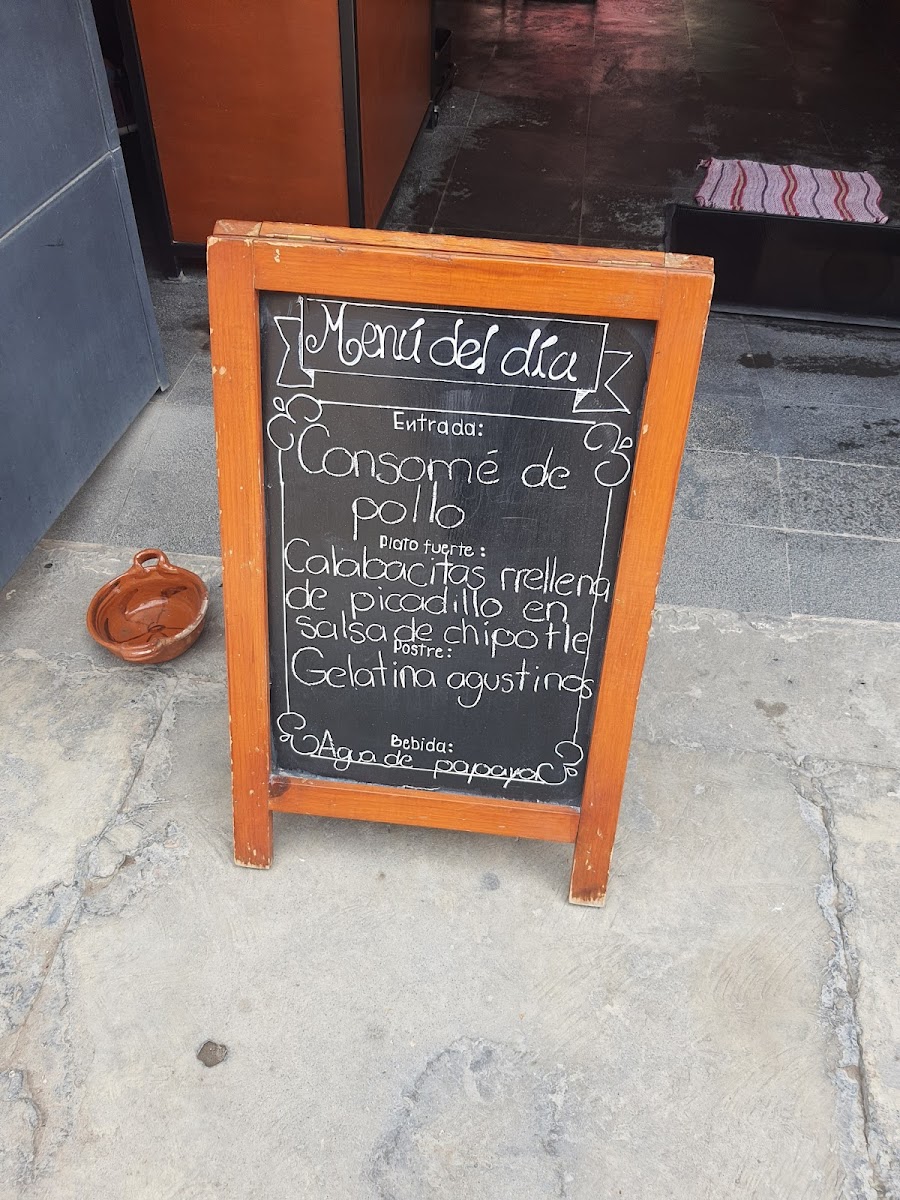 Menú del día
Entrada:
Consomé de
pollo
Plato fuerte:
Calabacitas rrellena
de picadillo en
salsa de chipotle
Postre:
Gelatina agustinos
Bebida:
Agua de papaya